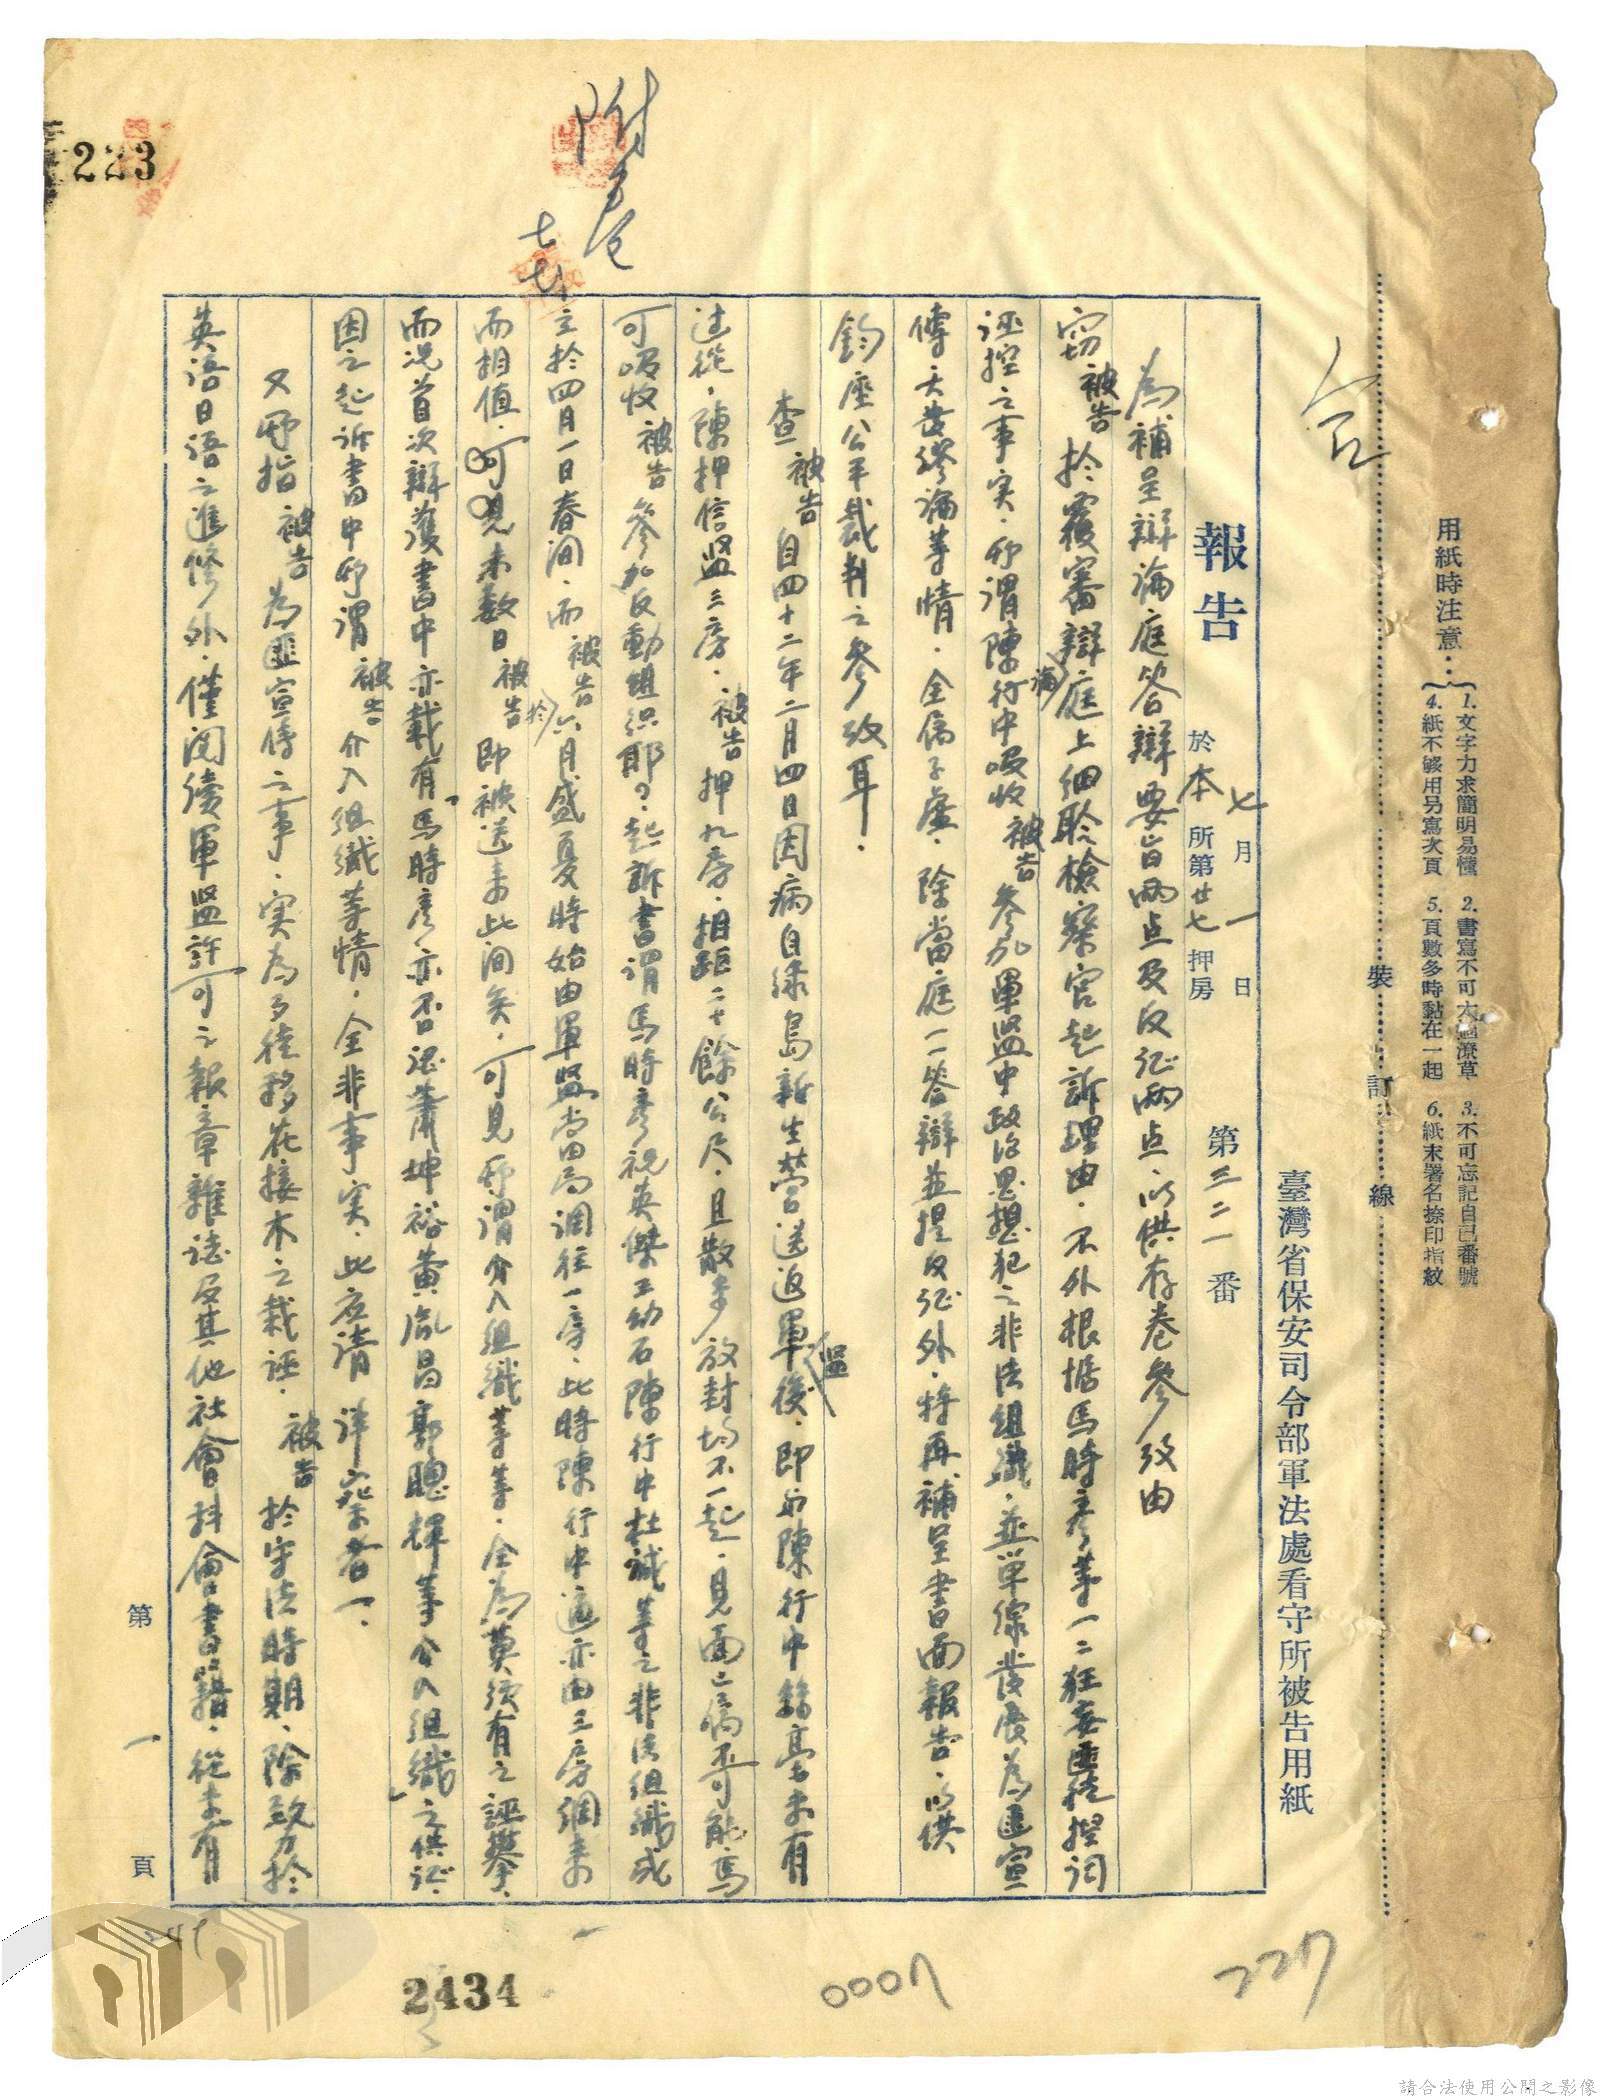 用紙時注意：
1.文字力求簡明易懂 2.書寫不可太過潦草 3.不可忘記自己番號
4.紙不够用另寫次頁 5.頁數多時黏在一起 6.紙末署名捺印指紋
裝 訂 線
臺灣省保安司令部軍法處看守所被告用紙
報告 七月一日 於本所第廿七押房 第三二一番
為補呈辯論庭答辯要旨兩点及反証兩点，以供存卷參攷由
窃被告於覆審辯論庭上細聆檢察官起訴理由，不外根據馬時彥等一二狂妄匪徒揑詞
誣控之事实，所謂陳行中吸收被告參加軍監中政治思想犯之非法組織，並单線发展為匪宣
傳，大发謬論等情，全偽子虛，除當庭一一答辯並提反証外，特再補呈書面報告，以供
鈞座公平裁判之參攷耳。
查被告自四十二年二月四日因病自綠島新生營送返軍監後，即与陳行中絲毫未有
过從，陳押信監三房，被告押九房，相距二十餘公尺，且散步放封均不一起，見面已偽不可能，焉
可吸收被告參加反動組織耶？起訴書謂馬時彥祝英傑王幼石陳行中杜誠等之非法組織成
立於四月一日春间，而被告於六月盛夏時始由軍監当局调往一房，此時陳行中適亦由三房调來
而相值，可見未數日被告即被送來此间矣，可見所謂介入組織等等，全為莫須有之誣攀，
而况首次辯護書中亦載有馬時彥亦否認蕭坤裕黃胤昌郭聰輝等介入組織之供証，
因之起訴書中所謂被告介入組織等情，全非事实，此应請詳察者一。
又所指被告為匪宣傳之事，实為多徒移花接木之栽誣，被告於守法時期，除致力於
英語日語之進修外，僅閱讀軍監許可之報章雜誌及其他社會科會書籍，從未有
第 一 頁
附卷
七
223
2434
0007
227
請合法使用公開之影像